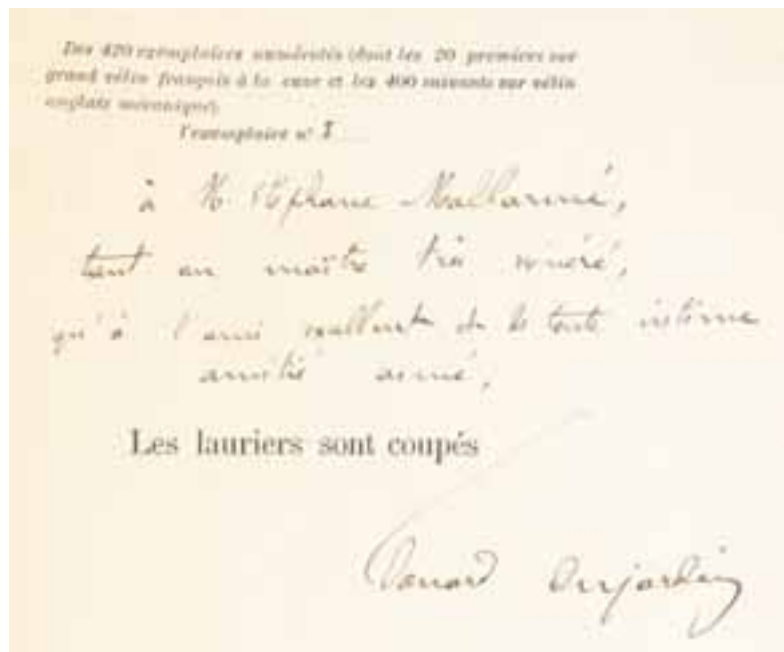 Des 420 exemplaires numérotés (dont les 20 premiers sur
grand vélin français à la cuve et les 400 suivants sur vélin
anglais mécanique),
l'exemplaire n°
à M Stéphane Mallarmé,
tant au maître très vénéré,
qu'à l'ami de la toute intime
amitié aimé,
Les lauriers sont coupés
Edouard Dujardin